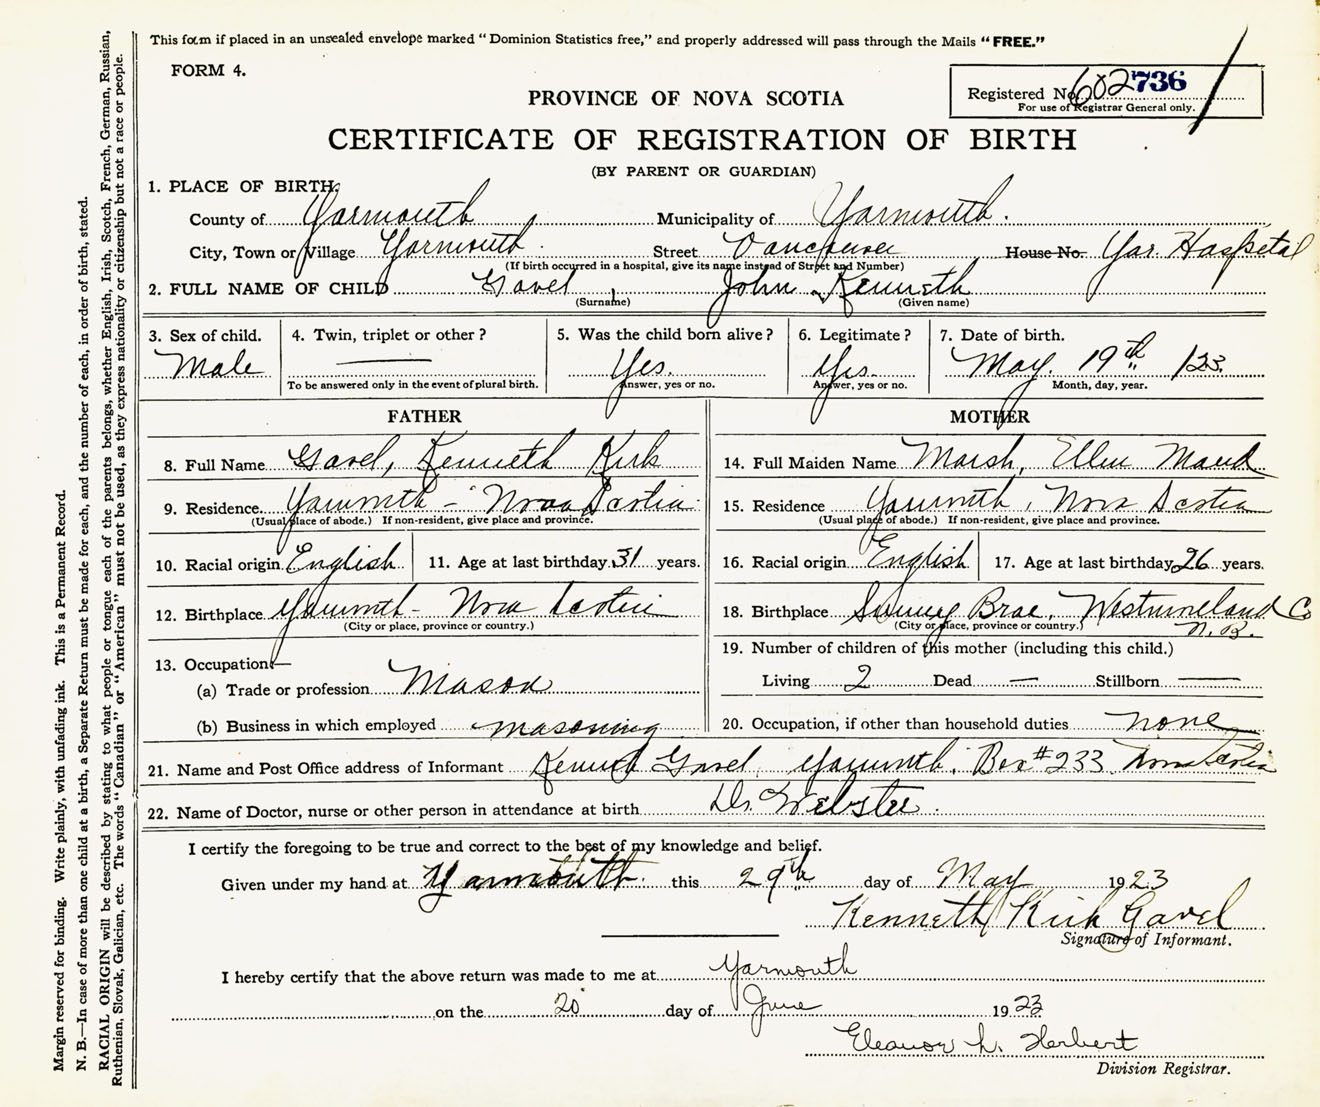 This form if placed in an unsealed envelope marked “Dominion Statistics free,” and properly addressed will pass through the Mails “FREE.”
FORM 4.
Registered No. 602736
For use of Registrar General only.
PROVINCE OF NOVA SCOTIA
CERTIFICATE OF REGISTRATION OF BIRTH
(BY PARENT OR GUARDIAN)
1. PLACE OF BIRTH:
County of Yarmouth Municipality of Yarmouth.
City, Town or Village Yarmouth. Street Vancouver House No. Yar. Hospital
(If birth occurred in a hospital, give its name instead of Street and Number)
2. FULL NAME OF CHILD Gavel, John Kenneth
(Surname) (Given name)
3. Sex of child. 4. Twin, triplet or other? 5. Was the child born alive? 6. Legitimate? 7. Date of birth.
Male — Yes. Yes. May. 19th 123.
To be answered only in the event of plural birth. Answer, yes or no. Answer, yes or no. Month, day, year.
FATHER
8. Full Name Gavel, Kenneth Kirk
9. Residence. Yarmouth - Nova Scotia
(Usual place of abode.) If non-resident, give place and province.
10. Racial origin English 11. Age at last birthday 31 years.
12. Birthplace Yarmouth - Nova Scotia
(City or place, province or country.)
13. Occupation:—
(a) Trade or profession Mason
(b) Business in which employed masoning
MOTHER
14. Full Maiden Name Marsh, Ellen Maud
15. Residence Yarmouth, Nova Scotia
(Usual place of abode.) If non-resident, give place and province.
16. Racial origin English 17. Age at last birthday 26 years.
18. Birthplace Sunny Brae, Westmoreland Co
(City or place, province or country.) N. B.
19. Number of children of this mother (including this child.)
Living 2 Dead — Stillborn —
20. Occupation, if other than household duties none
21. Name and Post Office address of Informant Kenneth Gavel, Yarmouth, Box #233 Nova Scotia
22. Name of Doctor, nurse or other person in attendance at birth Dr. Webster.
I certify the foregoing to be true and correct to the best of my knowledge and belief.
Given under my hand at Yarmouth this 29th day of May 1923
Kenneth Kirk Gavel
Signature of Informant.
I hereby certify that the above return was made to me at Yarmouth
on the 20 day of June 1923
Eleanor L. Herbert
Division Registrar.
Margin reserved for binding. Write plainly, with unfading ink. This is a Permanent Record.
N. B.—In case of more than one child at a birth, a Separate Return must be made for each, and the number of each, in order of birth, stated.
RACIAL ORIGIN will be described by stating to what people or tongue each of the parents belongs, whether English, Irish, Scotch, French, German, Russian,
Ruthenian, Slovak, Galician, etc. The words “Canadian” or “American” must not be used, as they express nationality or citizenship but not a race or people.